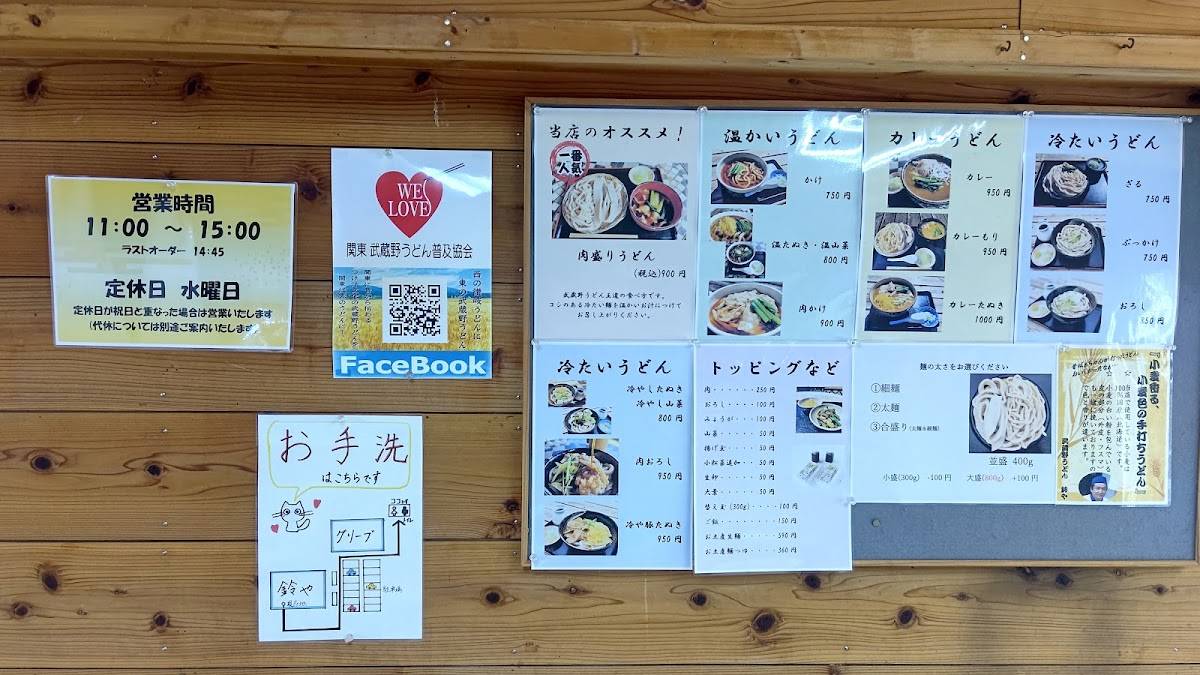 営業時間
11:00 ～ 15:00
ラストオーダー 14:45
定休日 水曜日
定休日が祝日と重なった場合は営業いたします
(代休については別途ご案内いたします)
WE
LOVE
関東 武蔵野うどん普及協会
西の讃岐うどんに
東の武蔵野うどん
FaceBook
お手洗
はこちらです
ココ
グリーブ
鈴や
駐車場
当店のオススメ！
一番
人気
肉盛りうどん
(税込)900円
武蔵野うどん王道の食べ方です。
コシのある冷たい麺を温かいお汁につけて
お召し上がりください。
温かいうどん
かけ
750円
温たぬき・温山菜
800円
肉かけ
900円
カレーうどん
カレー
950円
カレーもり
950円
カレーたぬき
1000円
冷たいうどん
ざる
750円
ぶっかけ
750円
おろし
850円
冷たいうどん
冷やしたぬき
冷やし山菜
800円
肉おろし
950円
冷や豚たぬき
950円
トッピングなど
肉・・・・・・250円
おろし・・・・100円
みょうが・・・100円
山菜・・・・・50円
揚げ玉・・・・50円
小松菜追加・・50円
生卵・・・・・50円
大葉・・・・・50円
替え玉(300g)・・・・100円
ご飯・・・・・・・150円
お土産生麺・・・・590円
お土産麺つゆ・・・360円
麺の太さをお選びください
①細麺
②太麺
③合盛り(太麺&細麺)
並盛 400g
小盛(300g) -100円 大盛(600g) +100円
小麦香る、
小麦色の手打ちうどん
当店で使用している小麦は
武蔵野うどん 鈴や